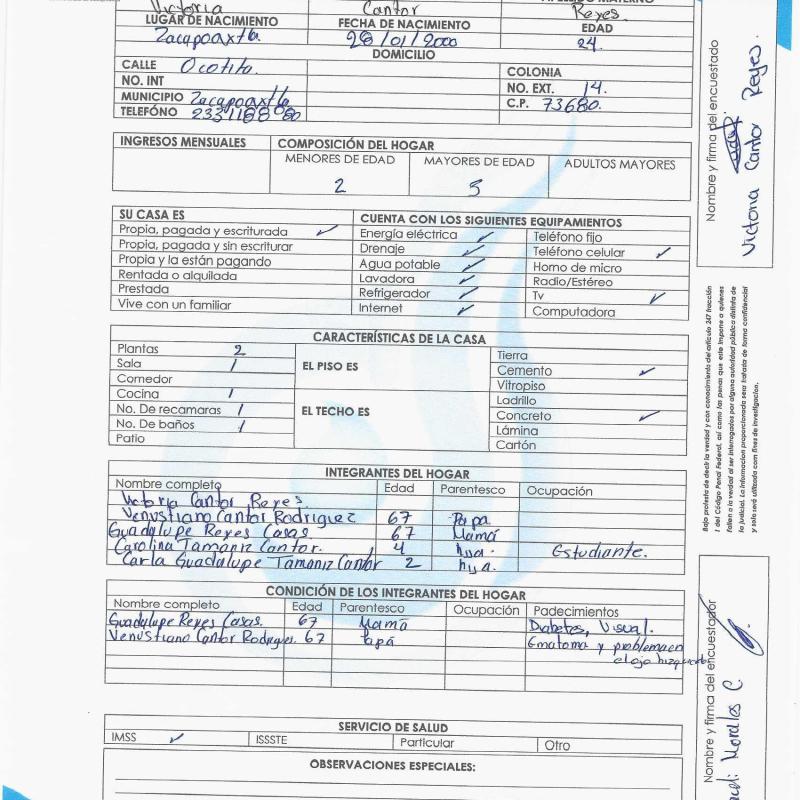 Victoria Cantor Reyes
LUGAR DE NACIMIENTO FECHA DE NACIMIENTO EDAD
Zacapoaxtla 28/01/2000 24.
DOMICILIO
CALLE Ocotita. COLONIA
NO. INT NO. EXT. 14.
MUNICIPIO Zacapoaxtla C.P. 73680.
TELEFÓNO
INGRESOS MENSUALES COMPOSICIÓN DEL HOGAR
MENORES DE EDAD MAYORES DE EDAD ADULTOS MAYORES
2 5
SU CASA ES CUENTA CON LOS SIGUIENTES EQUIPAMIENTOS
Propia, pagada y escriturada ✓ Energía eléctrica ✓ Teléfono fijo
Propia, pagada y sin escriturar Drenaje ✓ Teléfono celular ✓
Propia y la están pagando Agua potable ✓ Horno de micro
Rentada o alquilada Lavadora ✓ Radio/Estéreo
Prestada Refrigerador ✓ Tv ✓
Vive con un familiar Internet ✓ Computadora
CARACTERÍSTICAS DE LA CASA
Plantas 2 EL PISO ES Tierra
Sala 1 Cemento ✓
Comedor Vitropiso
Cocina 1 EL TECHO ES Ladrillo
No. De recamaras 1 Concreto ✓
No. De baños 1 Lámina
Patio Cartón
INTEGRANTES DEL HOGAR
Nombre completo Edad Parentesco Ocupación
Victoria Cantor Reyes
Venustiano Cantor Rodriguez 67 Papa
Guadalupe Reyes Casas 67 Mamá
Carolina Tamaniz Cantor. 4 hija. Estudiante.
Carla Guadalupe Tamaniz Cantor 2 hija.
CONDICIÓN DE LOS INTEGRANTES DEL HOGAR
Nombre completo Edad Parentesco Ocupación Padecimientos
Guadalupe Reyes Casas. 67 Mamá Diabetes, Visual.
Venustiano Cantor Rodriguez. 67 Papá Ematoma y problema en
el ojo
SERVICIO DE SALUD
IMSS ✓ ISSSTE Particular Otro
OBSERVACIONES ESPECIALES:
Nombre y firma del encuestado
Victoria Cantor Reyes.
Bajo protesta de decir la verdad y con conocimiento del artículo 247 fracción
I del Código Penal Federal, así como las penas que este impone a quienes
falten a la verdad al ser interrogados por alguna autoridad pública distinta de
la judicial. La informacion proporcionada sera tratada de forma confidencial
y solo será utilizada con fines de investigacion.
Nombre y firma del encuestador
Morales C